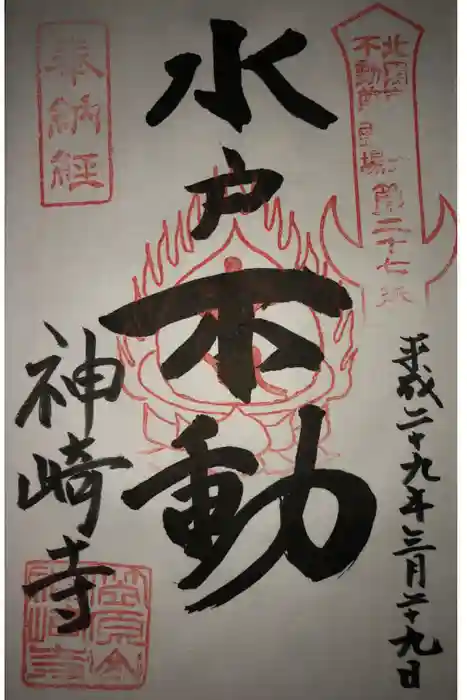 北関東
不動尊霊場第二十七番
平成二十九年三月二十九日
水戸不動
奉納経
神崎寺